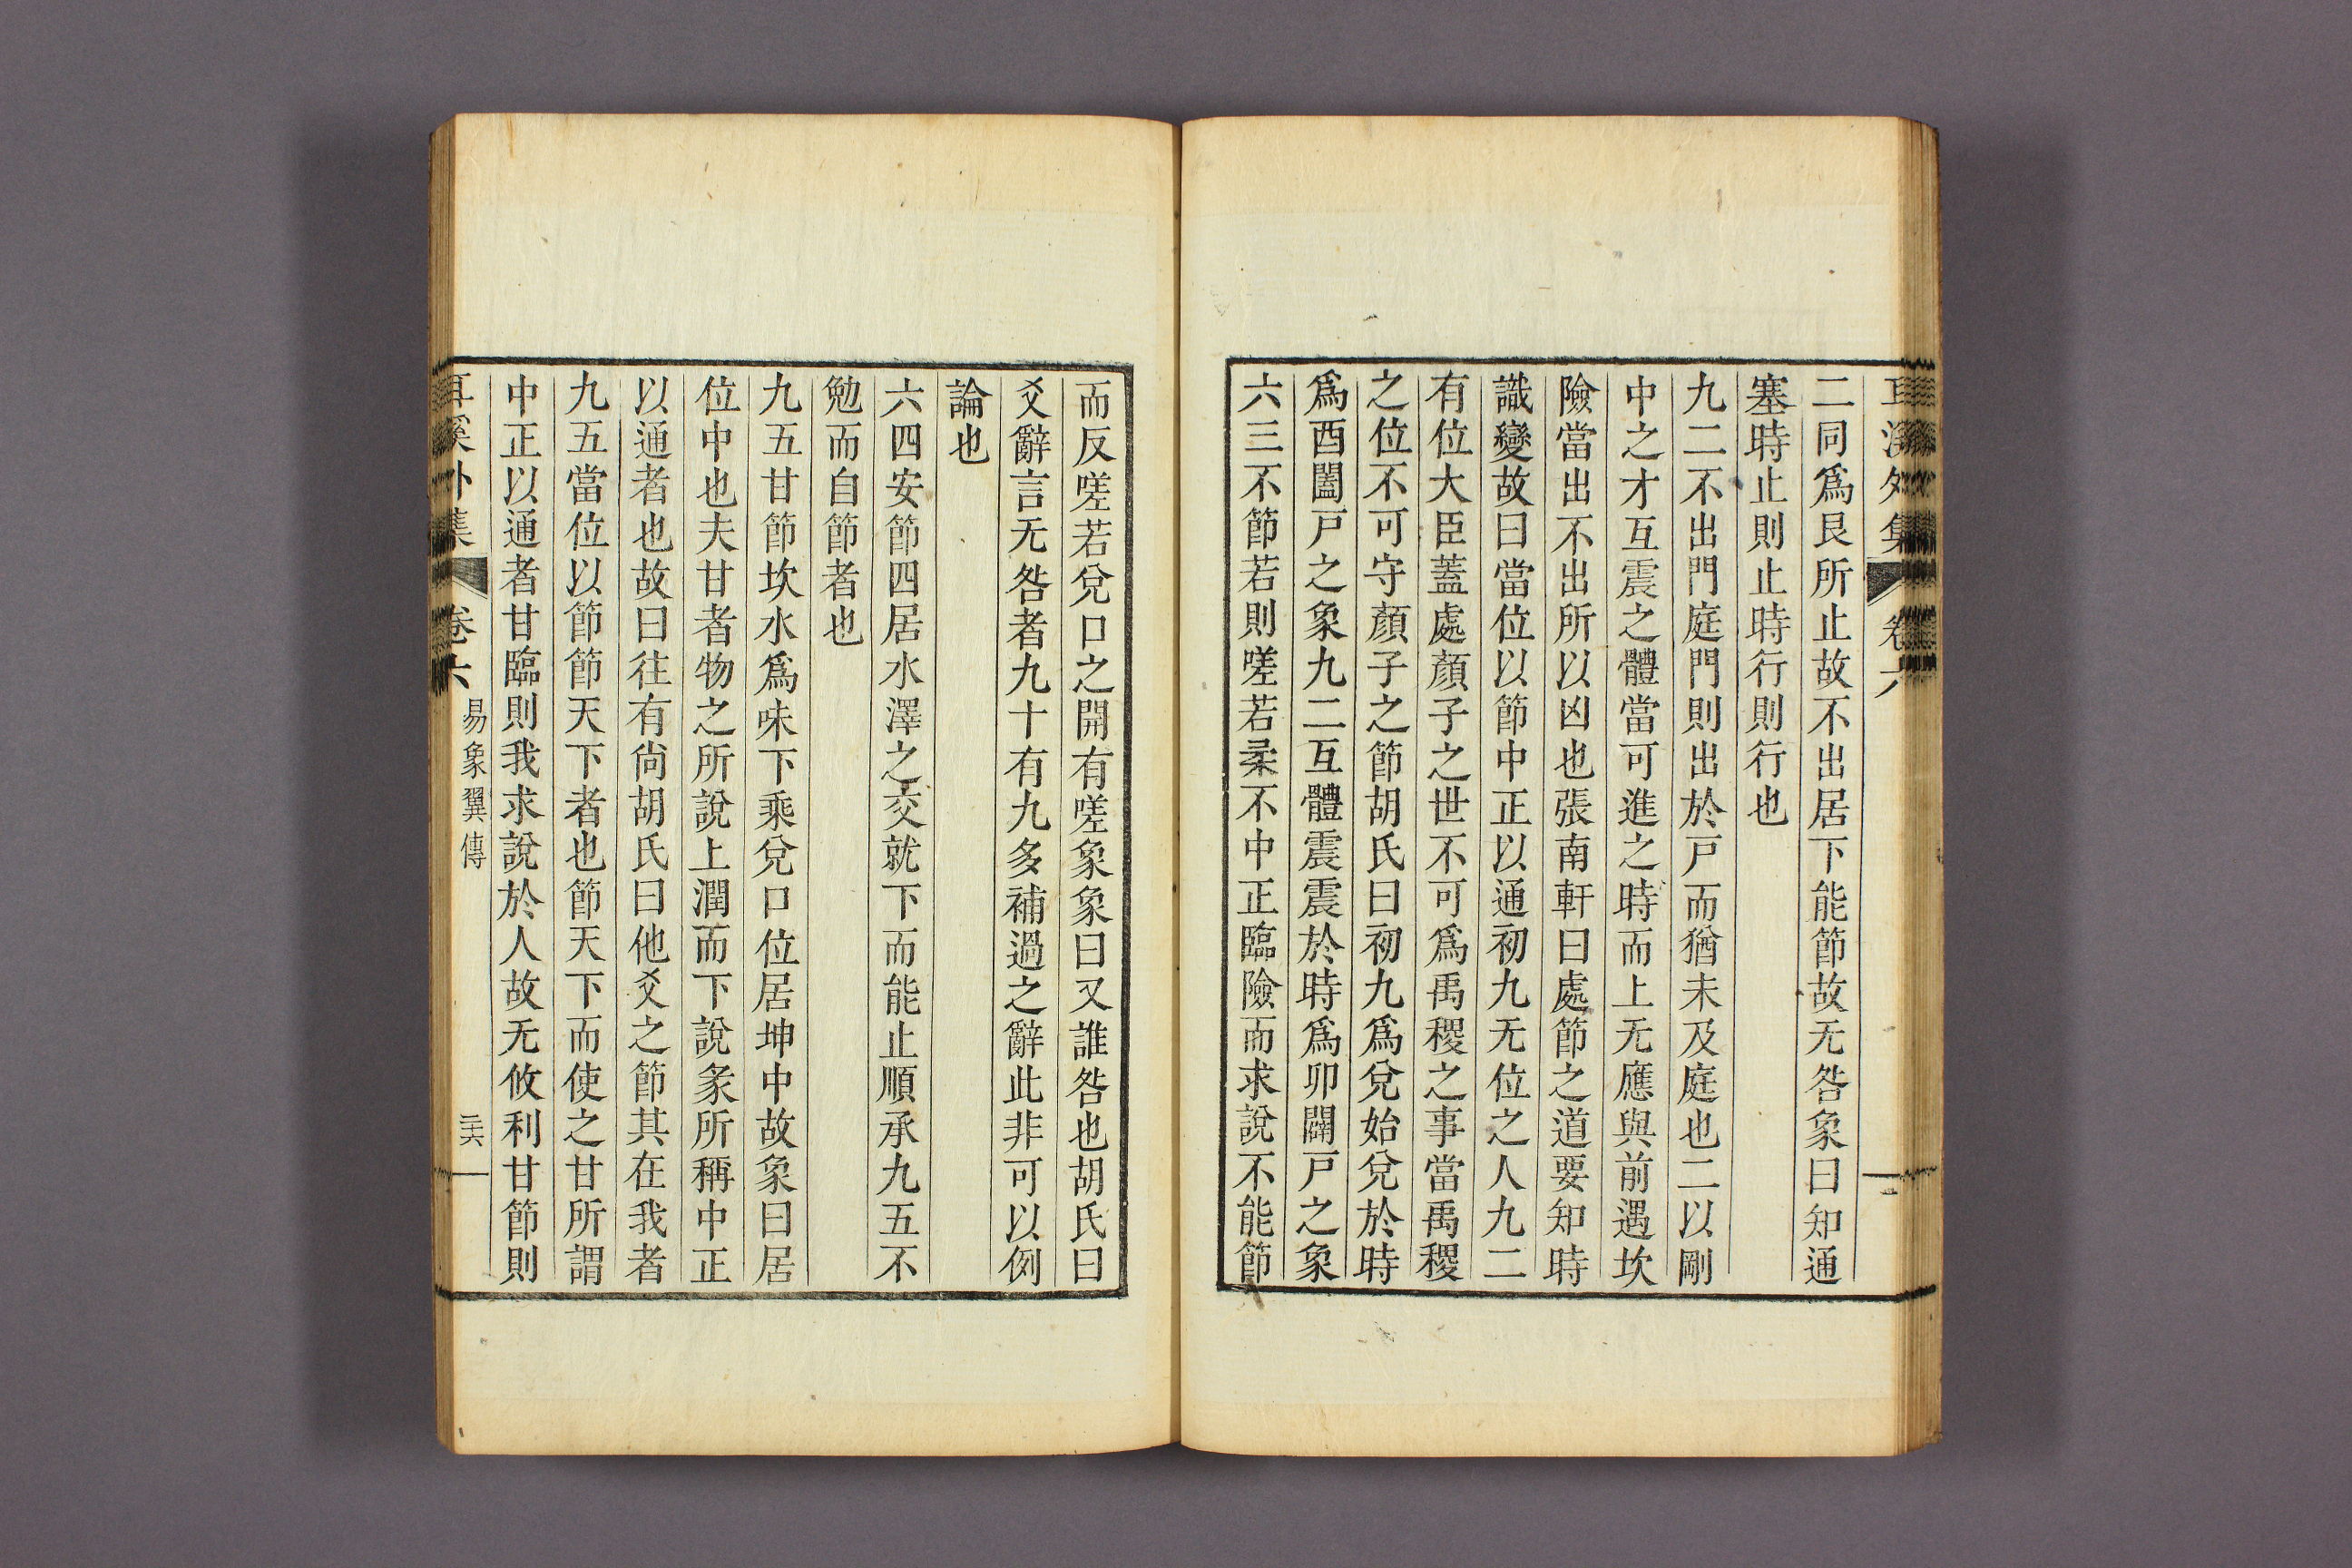 二同爲艮所止故不出居下能節故无咎象曰知通
塞時止則止時行則行也
九二不出門庭門則出於戸而猶未及庭也二以剛
中之才互震之體當可進之時而上无應與前遇坎
險當出不出所以凶也張南軒曰處節之道要知時
識變故曰當位以節中正以通初九无位之人九二
有位大臣蓋處顏子之世不可爲禹稷之事當禹稷
之位不可守顏子之節胡氏曰初九爲兌始兌於時
爲酉闔戸之象九二互體震震於時爲卯闢戸之象
六三不節若則嗟若柔不中正臨險而求說不能節
而反嗟若兌口之開有嗟象象曰又誰咎也胡氏曰
爻辭言无咎者九十有九多補過之辭此非可以例
論也
六四安節四居水澤之交就下而能止順承九五不
勉而自節者也
九五甘節坎水爲味下乘兌口位居坤中故象曰居
位中也夫甘者物之所說上潤而下說彖所稱中正
以通者也故曰往有尚胡氏曰他爻之節其在我者
九五當位以節節天下者也節天下而使之甘所謂
中正以通者甘臨則我求說於人故无攸利甘節則
耳溪外集 卷六 易象翼傳 二十六